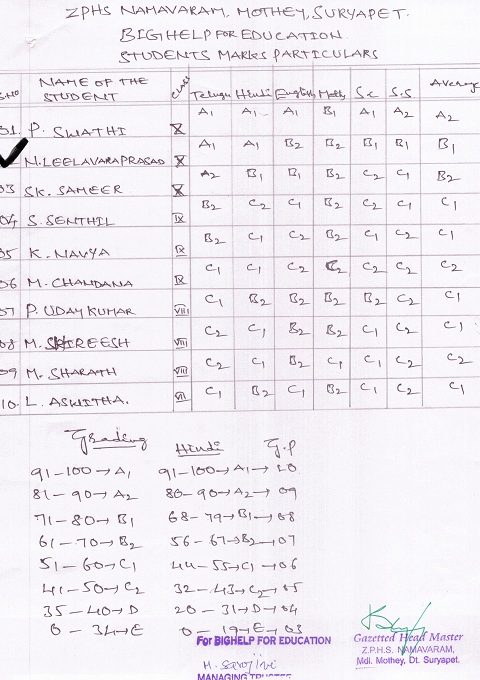 ZPHS NAMAVARAM, MOTHEY, SURYAPET.
BIGHELP FOR EDUCATION
STUDENTS MARKS PARTICULARS
NAME OF THE STUDENT Telugu Hindi English Maths S.c S.S Average
01. P. SWATHI X A1 A1 A1 B1 A1 A2 A2
N. LEELAVARAPRASAD X A1 A1 B2 B2 B1 B1 B1
03 SK. SAMEER X A2 B1 B1 B2 C2 C1 B2
04 S. SENTHIL IX B2 C2 C1 B2 C2 C1 C1
05 K. NAVYA IX B2 C1 C2 B2 C1 C2 C1
06 M. CHANDANA IX C1 C1 C2 C2 C2 C2 C2
07 P. UDAY KUMAR VIII C1 B2 B2 B2 B2 C2 C1
08 M. SHIREESH VIII C2 C1 B2 B2 C1 C2 C1
09 M. SHARATH VIII C2 C1 B2 C1 C1 C2 C2
10. L. ASWITHA. VII C1 B2 C1 B2 C1 C2 C1
Grading Hindi G.P
91-100→A1 91-100→A1→10
81-90→A2 80-90→A2→09
71-80→B1 68-79→B1→08
61-70→B2 56-67→B2→07
51-60→C1 44-55→C1→06
41-50→C2 32-43→C2→05
35-40→D 20-31→D→04
0-34→E 0-19→E→03
For BIGHELP FOR EDUCATION
M. Sarojini
MANAGING TRUSTEE
Gazetted Head Master
Z.P.H.S. NAMAVARAM,
Mdl. Mothey, Dt. Suryapet.